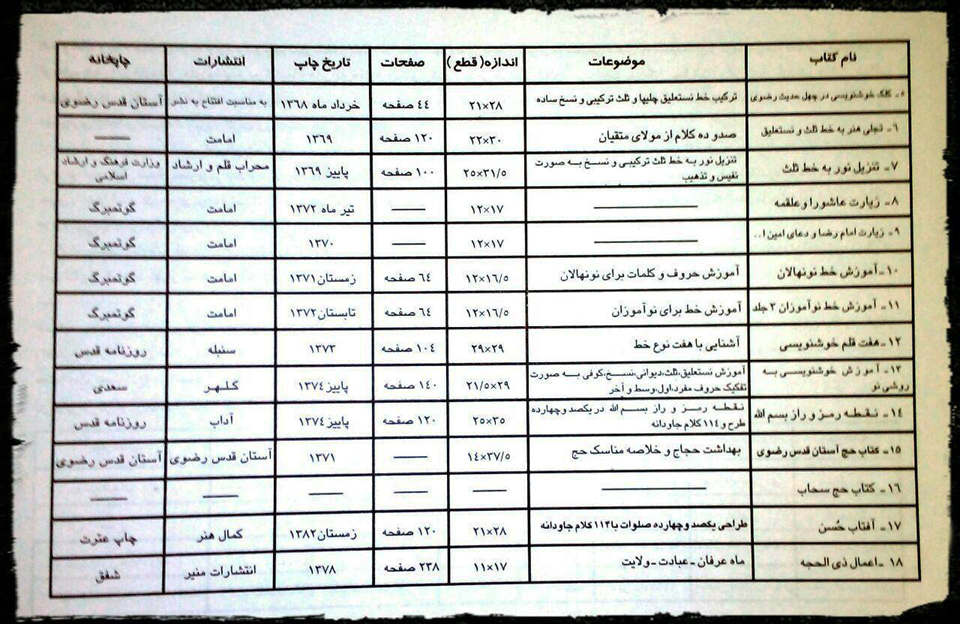 نام کتاب | موضوعات | اندازه(قطع) | صفحات | تاریخ چاپ | انتشارات | چاپخانه
۵- کلک خوشنویسی در چهل حدیث رضوی | ترکیب خط نستعلیق چلیپا و ثلث ترکیبی و نسخ ساده | ۲۱×۲۸ | ۴۴ صفحه | خرداد ماه ۱۳۶۸ | به مناسبت افتتاح به نشر | آستان قدس رضوی
۶- تجلی هنر به خط ثلث و نستعلیق | صد و ده کلام از مولای متقیان | ۲۲×۳۰ | ۱۲۰ صفحه | ۱۳۶۹ | امامت | ——
۷- تنزیل نور به خط ثلث | تنزیل نور به خط ثلث ترکیبی و نسخ به صورت | ۲۵×۳۱/۵ | ۱۰۰ صفحه | پاییز ۱۳۶۹ | محراب قلم و ارشاد | وزارت فرهنگ و ارشاد
نفیس و تذهیب | اسلامی
۸- زیارت عاشورا و علقمه | —— | ۱۲×۱۷ | —— | تیر ماه ۱۳۷۲ | امامت | گوتمبرگ
۹- زیارت امام رضا و دعای امین ا.. | —— | ۱۲×۱۷ | —— | ۱۳۷۰ | امامت | گوتمبرگ
۱۰- آموزش خط نونهالان | آموزش حروف و کلمات برای نونهالان | ۱۲×۱۶/۵ | ۶۴ صفحه | زمستان ۱۳۷۱ | امامت | گوتمبرگ
۱۱- آموزش خط نوآموزان ۲ جلد | آموزش خط برای نوآموزان | ۱۲×۱۶/۵ | ۶۴ صفحه | تابستان ۱۳۷۲ | امامت | گوتمبرگ
۱۲- هفت قلم خوشنویسی | آشنایی با هفت نوع خط | ۲۹×۲۹ | ۱۰۴ صفحه | ۱۳۷۳ | سنبله | روزنامه قدس
۱۳- آموزش خوشنویسی به | آموزش نستعلیق،ثلث،دیوانی،نسخ،کوفی به صورت | ۲۱/۵×۲۹ | ۱۴۰ صفحه | پاییز ۱۳۷۴ | گلهر | سعدی
روشی نو | تفکیک حروف مفرد،اول،وسط و آخر
۱۴- نقطه رمز و راز بسم الله | نقطه رمز و راز بسم الله در یکصد و چهارده | ۲۵×۳۵ | ۱۲۰ صفحه | پاییز ۱۳۷۴ | آداب | روزنامه قدس
طرح و ۱۱۴ کلام جاودانه
۱۵- کتاب حج آستان قدس رضوی | بهداشت حجاج و خلاصه مناسک حج | ۱۴×۳۷/۵ | —— | ۱۳۷۱ | آستان قدس رضوی | آستان قدس رضوی
۱۶- کتاب حج سحاب | —— | —— | —— | —— | —— | ——
۱۷- آفتاب حُسن | طراحی یکصد و چهارده صلوات با ۱۱۴ کلام جاودانه | ۲۱×۲۸ | ۱۲۰ صفحه | زمستان ۱۳۸۲ | کمال هنر | چاپ عترت
۱۸- اعمال ذی الحجه | ماه عرفان - عبادت - ولایت | ۱۱×۱۷ | ۲۳۸ صفحه | ۱۳۷۸ | انتشارات منیر | شفق